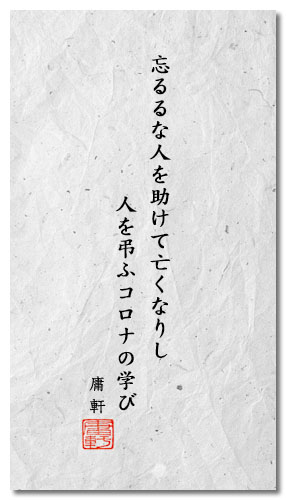 忘るるな人を助けて亡くなりし
人を弔ふコロナの学び
庸軒